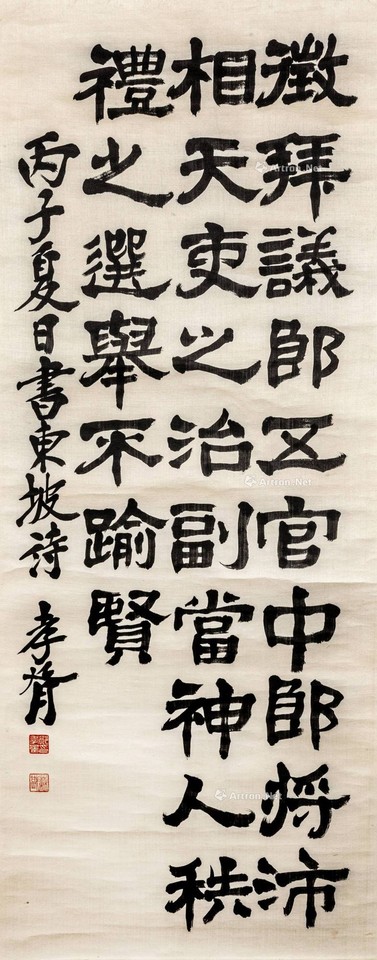 徵拜議郎五官中郎將沛
相天吏之治副當神人秩
禮之選舉不踰賢
丙子夏日書東坡詩 孝胥
Artron.Net
Artron.Net
Artron.Net